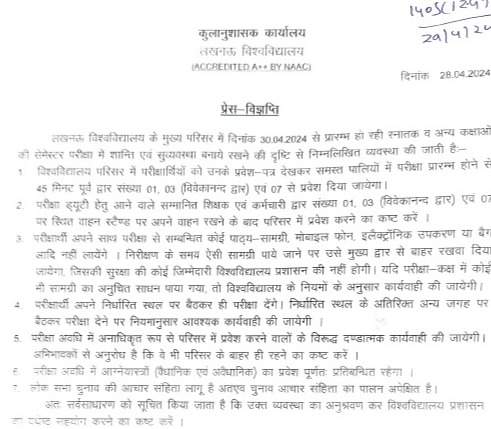 1405(124)
29/4/24
कुलानुशासक कार्यालय
लखनऊ विश्वविद्यालय
(ACCREDITED A++ BY NAAC)
दिनांक 28.04.2024
प्रेस–विज्ञप्ति
लखनऊ विश्वविद्यालय के मुख्य परिसर में दिनांक 30.04.2024 से प्रारम्भ हो रही स्नातक व अन्य कक्षाओं
की सेमेस्टर परीक्षा में शान्ति एवं सुव्यवस्था बनाये रखने की दृष्टि से निम्नलिखित व्यवस्था की जाती है:–
1. विश्वविद्यालय परिसर में परीक्षार्थियों को उनके प्रवेश–पत्र देखकर समस्त पालियों में परीक्षा प्रारम्भ होने से
45 मिनट पूर्व द्वार संख्या 01, 03 (विवेकानन्द द्वार) एवं 07 से प्रवेश दिया जायेगा।
2. परीक्षा ड्यूटी हेतु आने वाले सम्मानित शिक्षक एवं कर्मचारी द्वार संख्या 01, 03 (विवेकानन्द द्वार) एवं 07
पर स्थित वाहन स्टैण्ड पर अपने वाहन रखने के बाद परिसर में प्रवेश करने का कष्ट करें ।
3. परीक्षार्थी अपने साथ परीक्षा से सम्बन्धित कोई पाठ्य–सामग्री, मोबाइल फोन, इलेक्ट्रॉनिक उपकरण या बैग
आदि नहीं लायेंगे । निरीक्षण के समय ऐसी सामग्री पाये जाने पर उसे मुख्य द्वार से बाहर रखवा दिया
जायेगा, जिसकी सुरक्षा की कोई जिम्मेदारी विश्वविद्यालय प्रशासन की नहीं होगी। यदि परीक्षा–कक्ष में कोई
भी सामग्री का अनुचित साधन पाया गया, तो विश्वविद्यालय के नियमों के अनुसार कार्यवाही की जायेगी।
4. परीक्षार्थी अपने निर्धारित स्थल पर बैठकर ही परीक्षा देंगे। निर्धारित स्थल के अतिरिक्त अन्य जगह पर
बैठकर परीक्षा देने पर नियमानुसार आवश्यक कार्यवाही की जायेगी ।
5. परीक्षा अवधि में अनाधिकृत रूप से परिसर में प्रवेश करने वालों के विरूद्ध दण्डात्मक कार्यवाही की जायेगी।
अभिभावकों से अनुरोध है कि वे भी परिसर के बाहर ही रहने का कष्ट करें ।
6. परीक्षा अवधि में आग्नेयास्त्रों (वैधानिक एवं अवैधानिक) का प्रवेश पूर्णतः प्रतिबन्धित रहेगा ।
7. लोक सभा चुनाव की आचार संहिता लागू है अतएव चुनाव आचार संहिता का पालन अपेक्षित है।
अतः सर्वसाधारण को सूचित किया जाता है कि उक्त व्यवस्था का अनुश्रवण कर विश्वविद्यालय प्रशासन
का यथेष्ट सहयोग करने का कष्ट करें ।